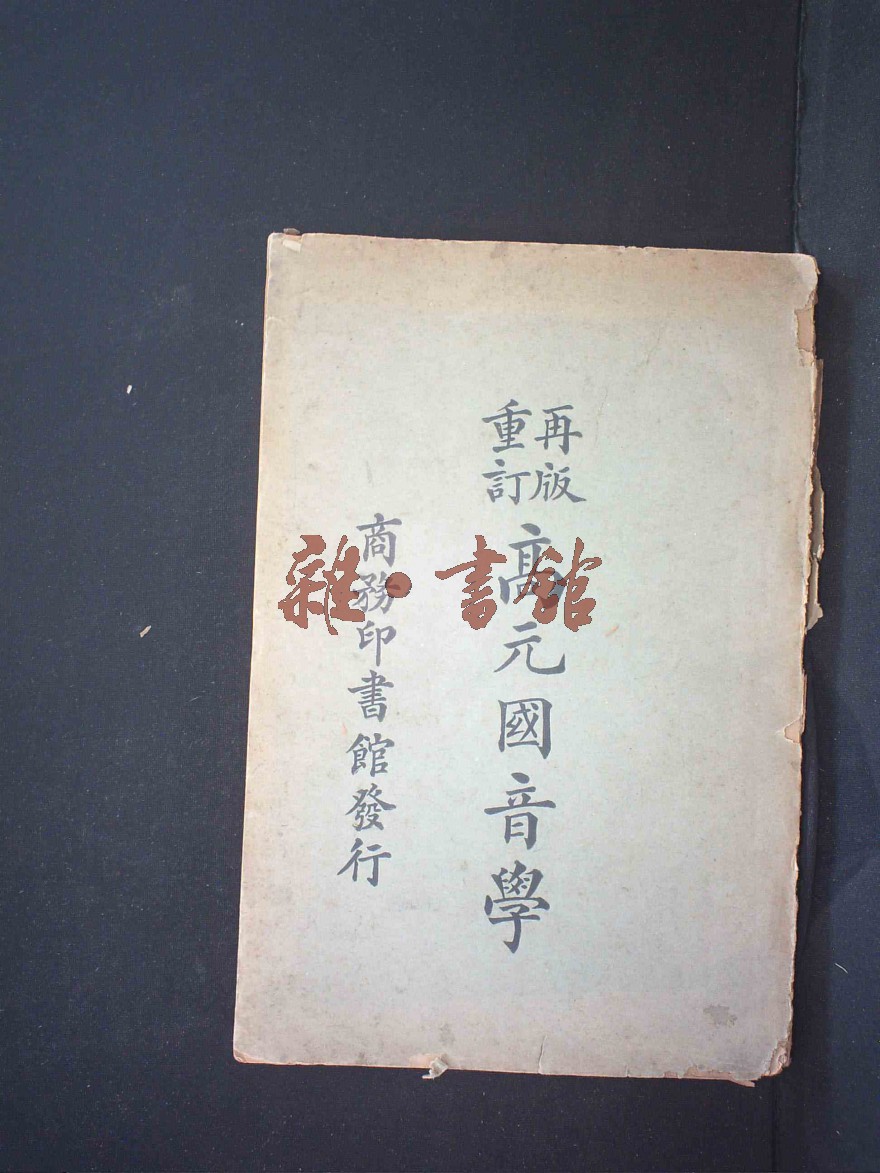 再版
重訂
高元國音學
商務印書館發行
雜·書館